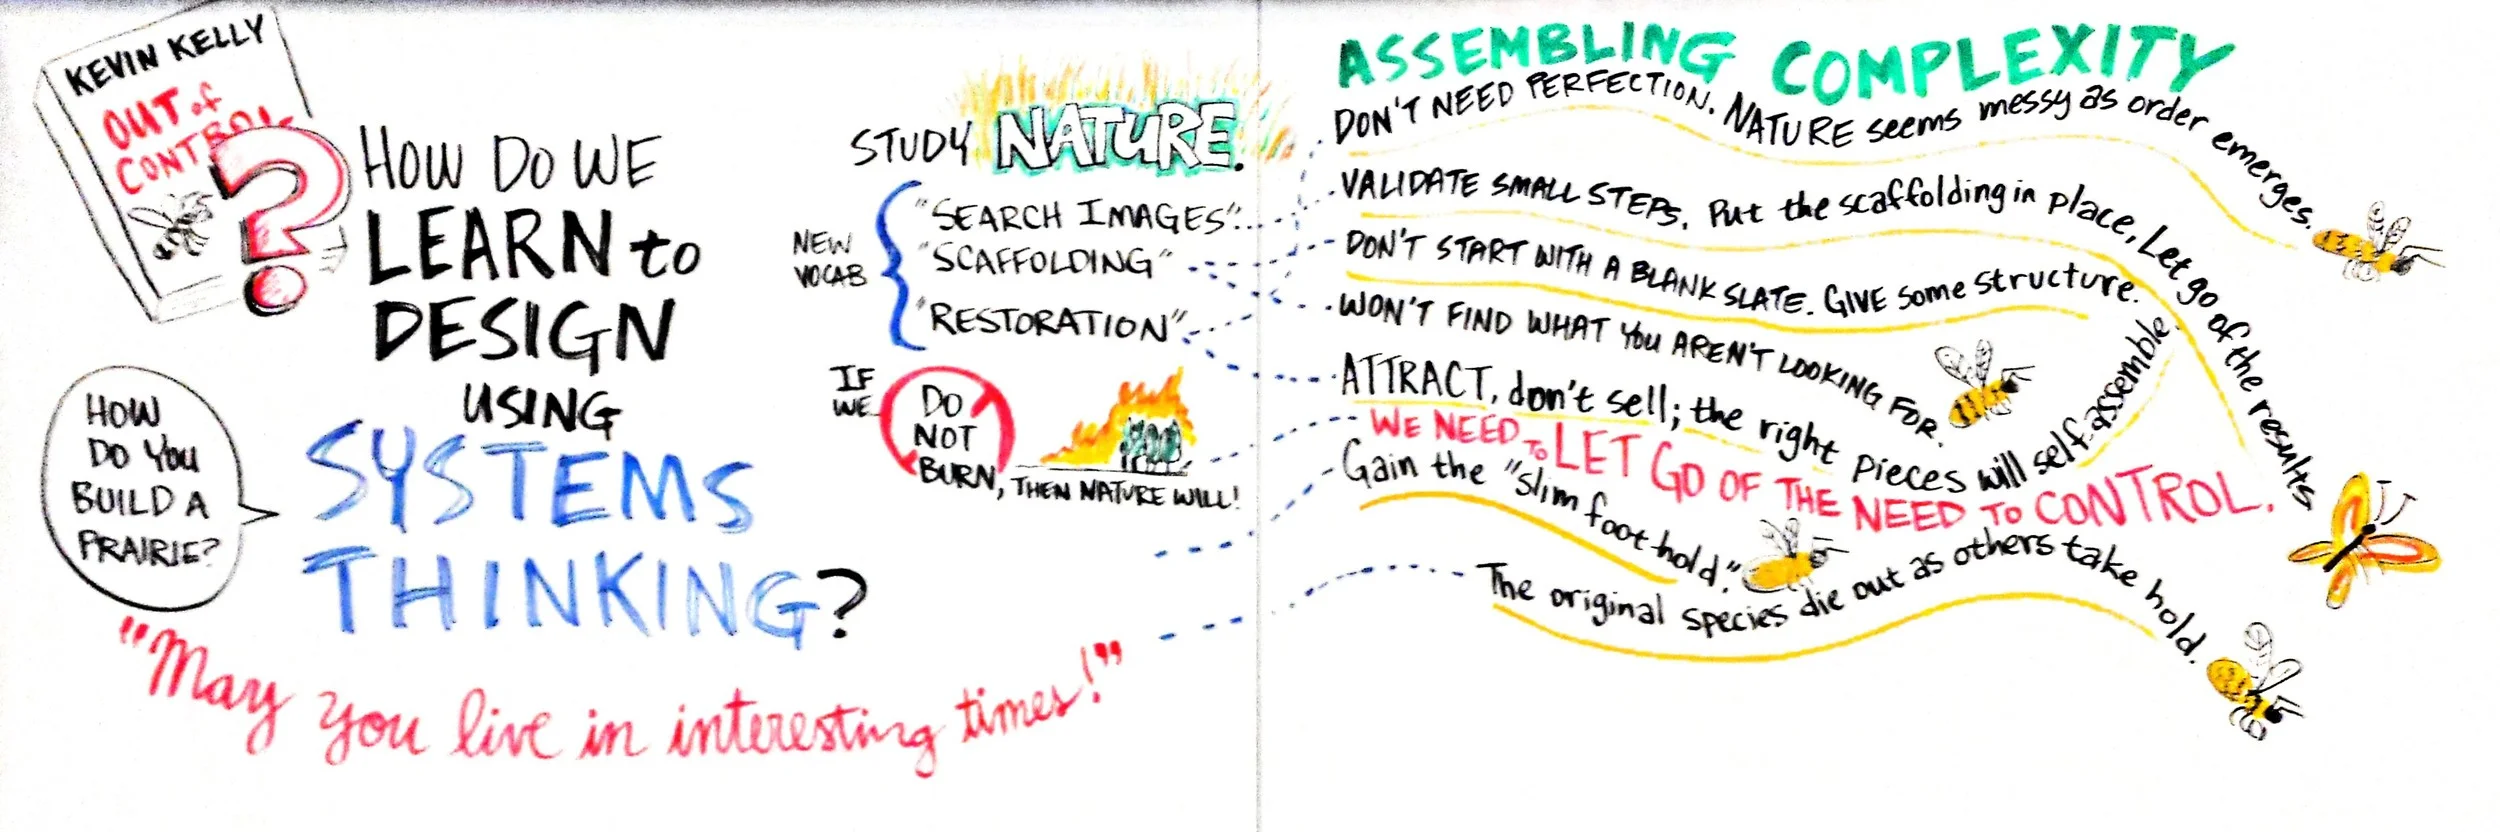 KEVIN KELLY
OUT of
CONTROL
?
HOW DO WE
LEARN to
DESIGN
USING
SYSTEMS
THINKING?
HOW
DO YOU
BUILD A
PRAIRIE?
"May you live in interesting times!"
STUDY NATURE.
NEW
VOCAB
"SEARCH IMAGES"
"SCAFFOLDING"
"RESTORATION"
IF
WE
DO
NOT
BURN, THEN NATURE WILL!
ASSEMBLING COMPLEXITY
DON'T NEED PERFECTION. NATURE seems messy as order emerges.
VALIDATE SMALL STEPS. Put the scaffolding in place, Let go of the results
DON'T START WITH A BLANK SLATE. GIVE some structure.
WON'T FIND WHAT YOU AREN'T LOOKING FOR.
ATTRACT, don't sell; the right pieces will self-assemble.
WE NEED TO LET GO OF THE NEED TO CONTROL.
Gain the "slim foot-hold."
The original species die out as others take hold.